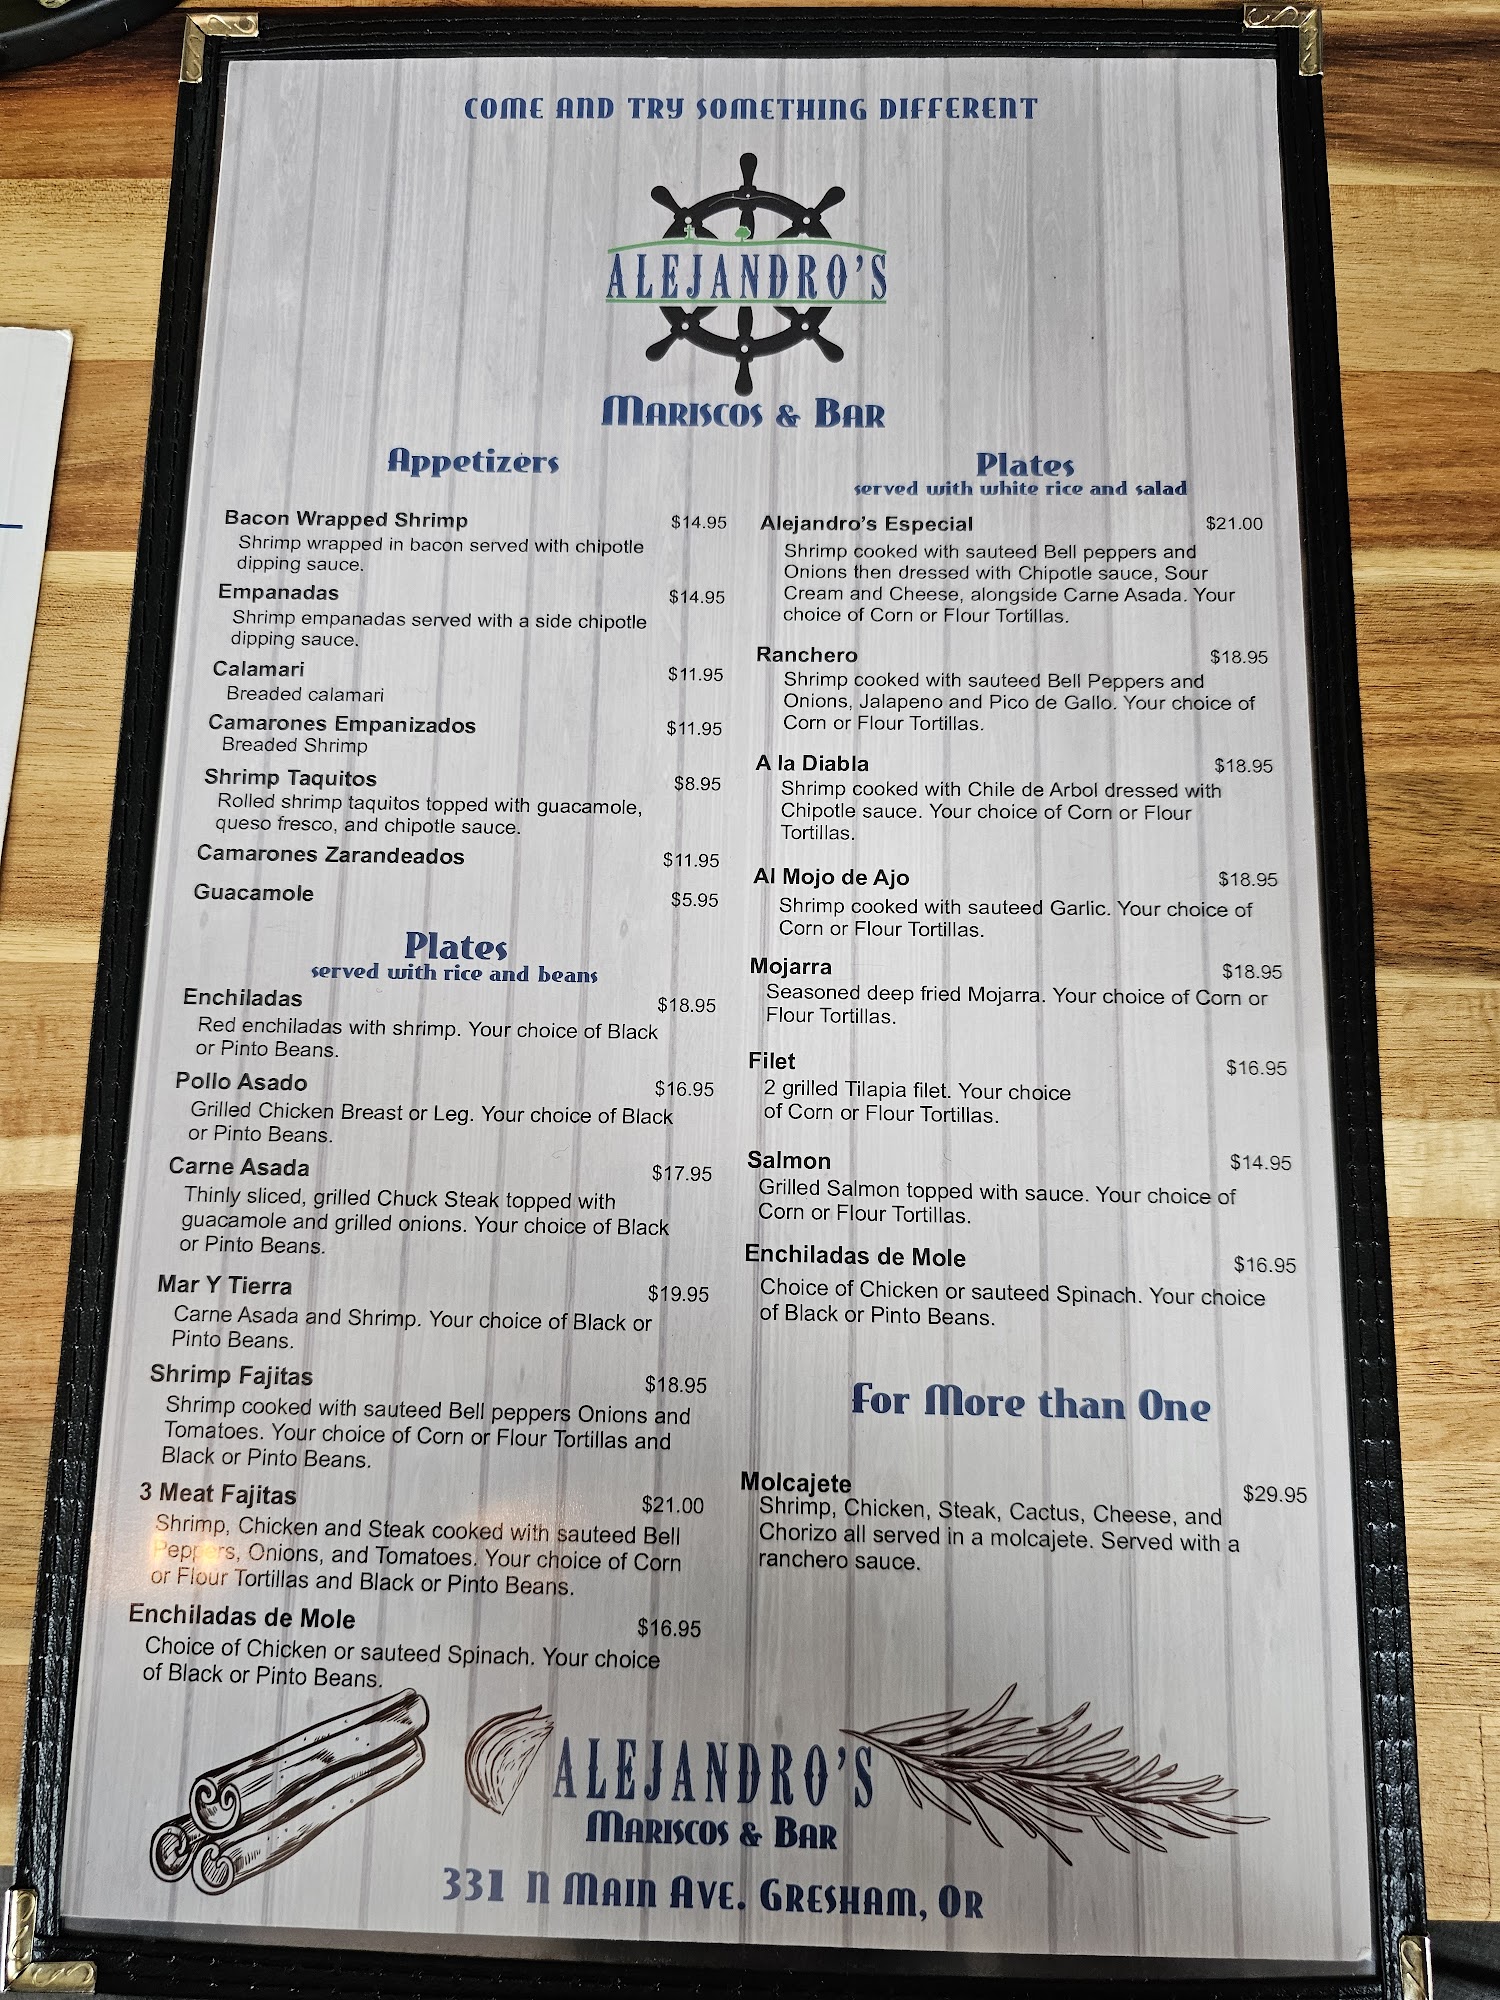 COME AND TRY SOMETHING DIFFERENT
ALEJANDRO'S
MARISCOS & BAR
Appetizers
Bacon Wrapped Shrimp $14.95
Shrimp wrapped in bacon served with chipotle
dipping sauce.
Empanadas $14.95
Shrimp empanadas served with a side chipotle
dipping sauce.
Calamari $11.95
Breaded calamari
Camarones Empanizados $11.95
Breaded Shrimp
Shrimp Taquitos $8.95
Rolled shrimp taquitos topped with guacamole,
queso fresco, and chipotle sauce.
Camarones Zarandeados $11.95
Guacamole $5.95
Plates
served with rice and beans
Enchiladas $18.95
Red enchiladas with shrimp. Your choice of Black
or Pinto Beans.
Pollo Asado $16.95
Grilled Chicken Breast or Leg. Your choice of Black
or Pinto Beans.
Carne Asada $17.95
Thinly sliced, grilled Chuck Steak topped with
guacamole and grilled onions. Your choice of Black
or Pinto Beans.
Mar Y Tierra $19.95
Carne Asada and Shrimp. Your choice of Black or
Pinto Beans.
Shrimp Fajitas $18.95
Shrimp cooked with sauteed Bell peppers Onions and
Tomatoes. Your choice of Corn or Flour Tortillas and
Black or Pinto Beans.
3 Meat Fajitas $21.00
Shrimp, Chicken and Steak cooked with sauteed Bell
Peppers, Onions, and Tomatoes. Your choice of Corn
or Flour Tortillas and Black or Pinto Beans.
Enchiladas de Mole $16.95
Choice of Chicken or sauteed Spinach. Your choice
of Black or Pinto Beans.
Plates
served with white rice and salad
Alejandro's Especial $21.00
Shrimp cooked with sauteed Bell peppers and
Onions then dressed with Chipotle sauce, Sour
Cream and Cheese, alongside Carne Asada. Your
choice of Corn or Flour Tortillas.
Ranchero $18.95
Shrimp cooked with sauteed Bell Peppers and
Onions, Jalapeno and Pico de Gallo. Your choice of
Corn or Flour Tortillas.
A la Diabla $18.95
Shrimp cooked with Chile de Arbol dressed with
Chipotle sauce. Your choice of Corn or Flour
Tortillas.
Al Mojo de Ajo $18.95
Shrimp cooked with sauteed Garlic. Your choice of
Corn or Flour Tortillas.
Mojarra $18.95
Seasoned deep fried Mojarra. Your choice of Corn or
Flour Tortillas.
Filet $16.95
2 grilled Tilapia filet. Your choice
of Corn or Flour Tortillas.
Salmon $14.95
Grilled Salmon topped with sauce. Your choice of
Corn or Flour Tortillas.
Enchiladas de Mole $16.95
Choice of Chicken or sauteed Spinach. Your choice
of Black or Pinto Beans.
For More than One
Molcajete $29.95
Shrimp, Chicken, Steak, Cactus, Cheese, and
Chorizo all served in a molcajete. Served with a
ranchero sauce.
ALEJANDRO'S
MARISCOS & BAR
331 N MAIN AVE. GRESHAM, OR